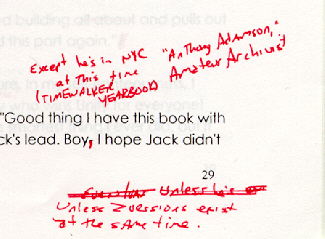 d building all about and pulls out
d this part again."
Except he's in NYC "Anthony Adamson,"
at this time Amateur Archivist
(TIMEWALKER YEARBOOK)
who
for everyone!
"Good thing I have this book with
ck's lead. Boy, I hope Jack didn't
29
Unless he's
Unless 2 versions exist
at the same time.